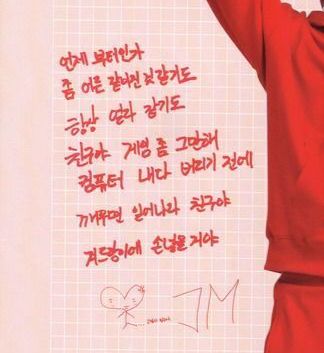 언제 부터인가
좀 어른 같아진 것 같기도
항상 얼라 같기도
친구야 게임 좀 그만해
컴퓨터 내다 버리기 전에
깨우면 일어나라 친구야
겨드랑이에 손 넣을 거야
JM